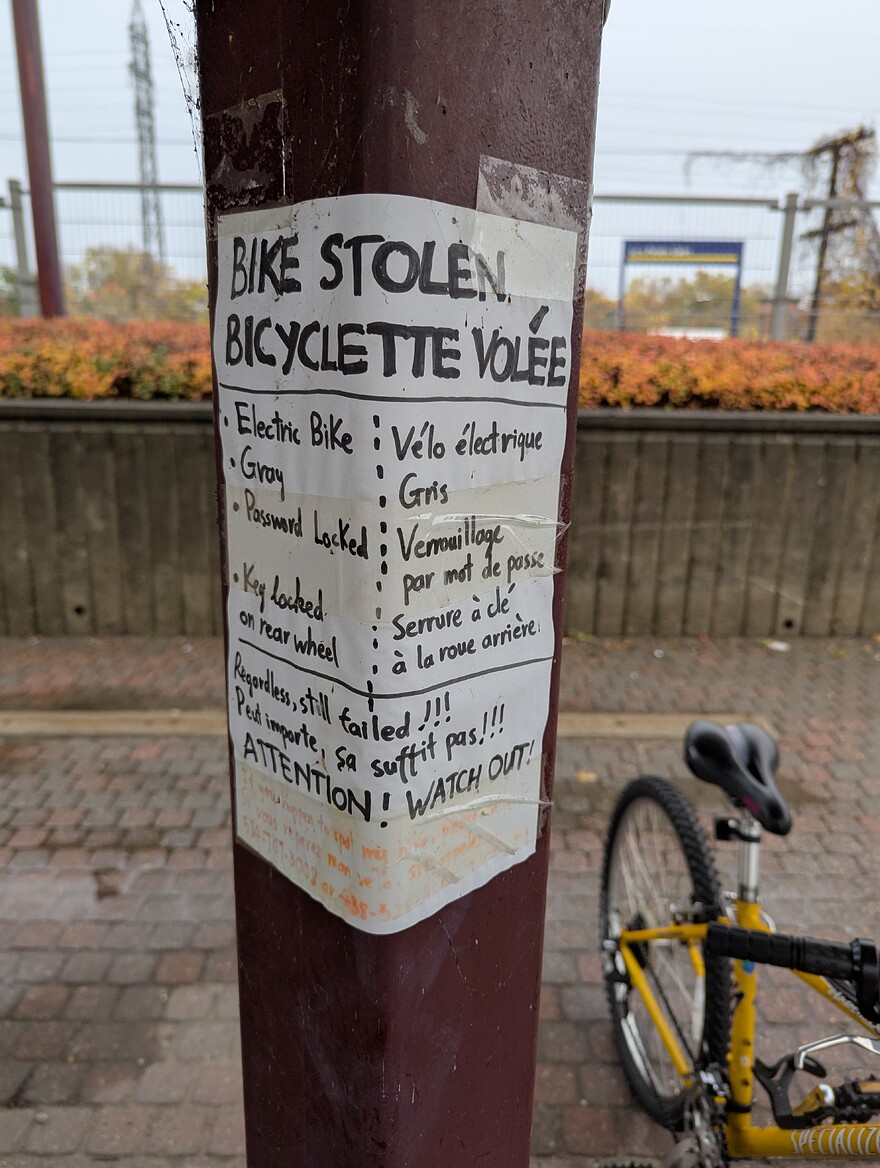 BIKE STOLEN
BICYCLETTE VOLÉE
• Electric Bike
• Gray
• Password Locked
• Key locked
on rear wheel
Vélo électrique
Gris
Verrouillage
par mot de passe
Serrure à clé
à la roue arrière
Regardless, still failed!!!
Peut importe, ça suffit pas!!!
ATTENTION! WATCH OUT!
If you happen to spot my bike,
vous repérez mon vélo
SPECIALIZE